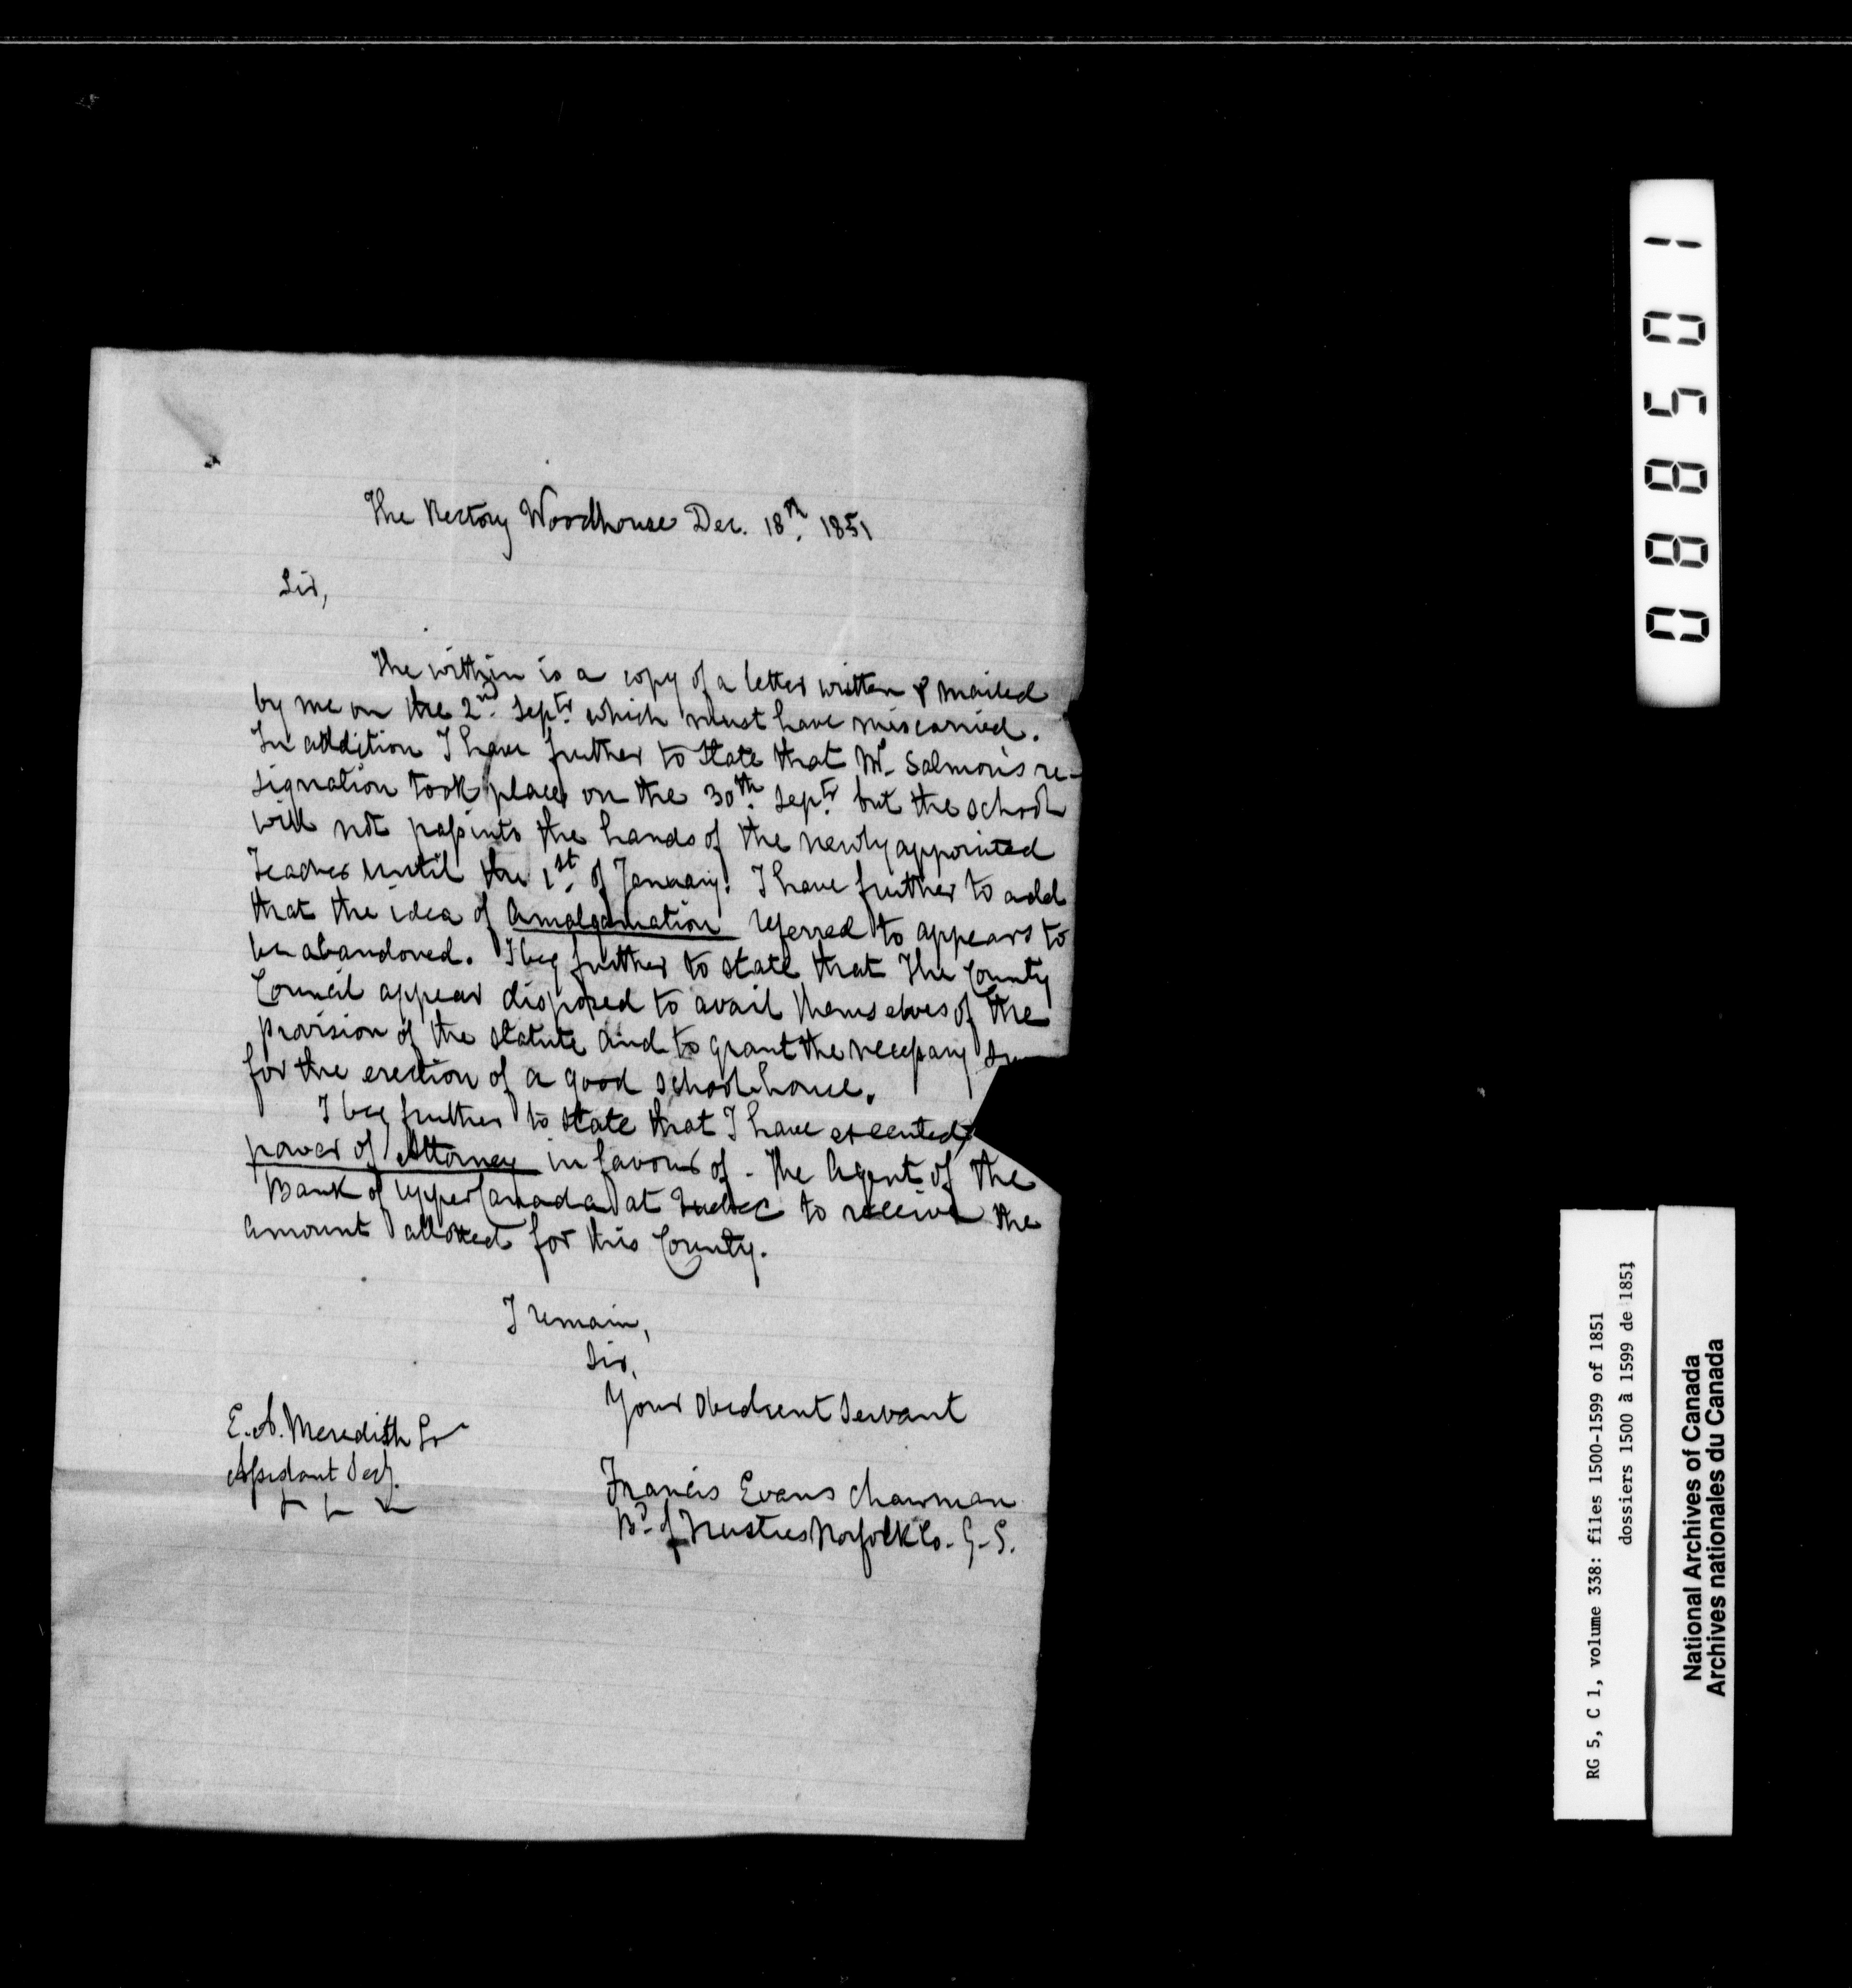 The Rectory Woodhouse Dec. 18th. 1851
Sir,
The within is a copy of a letter written & mailed
by me on the 2nd. Septr. which must have miscarried.
In addition I have further to state that Mr. Salmon's re-
signation took place on the 30th. Septr. but the school
will not pass into the hands of the newly appointed
Teacher until the 1st. of January. I have further to add
that the idea of Amalgamation referred to appears to
be abandoned. I beg further to state that The County
Council appear disposed to avail themselves of the
provision of the statute and to grant the necessary
for the erection of a good school house.
I beg further to state that I have executed
power of Attorney in favour of - The Agent of the
Bank of Upper Canada at Quebec to receive the
amount allotted for this County.
I remain,
Sir,
Your Obedient Servant
E. A. Meredith
Assistant Secy.
Francis Evans Chairman
Bd. of Trustees Norfolk Co. G. S.
088501
RG 5, C 1, volume 338: files 1500-1599 of 1851
dossiers 1500 à 1599 de 1851
National Archives of Canada
Archives nationales du Canada